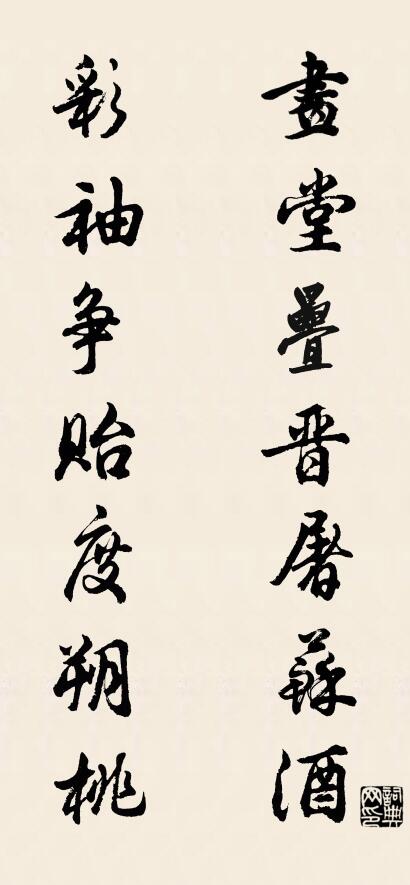 畫堂疊晋屠蘇酒
彩袖争貽度朔桃
詞典网印